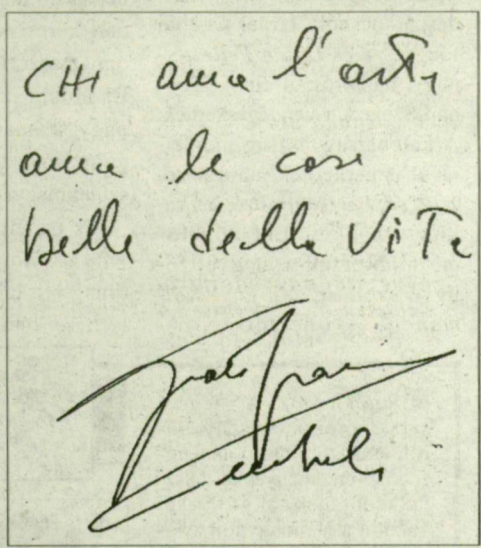 CHI ama l'arte
ama le cose
belle della ViTa